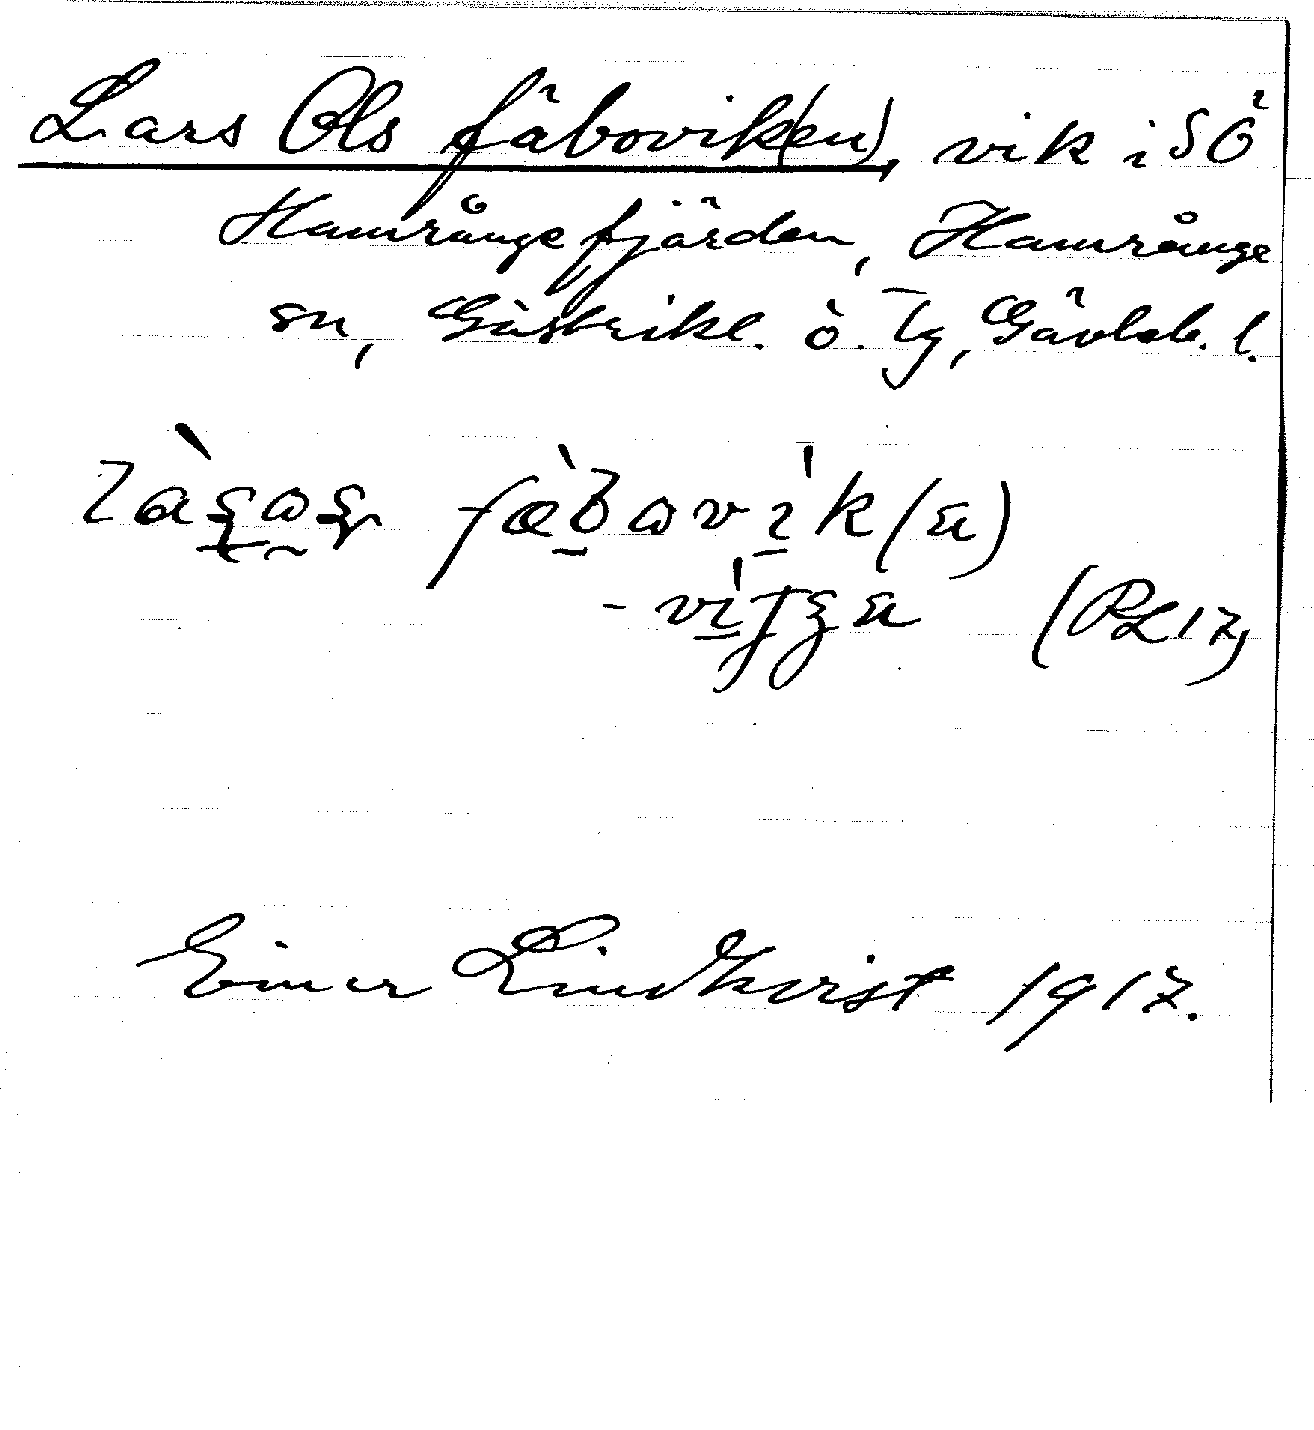 Lars Ols fäbovik(en), vik i SÖ
Hamrångefjärden, Hamrånge
sn, Gästrikl. ö. tg, Gävleb. l.
fæ̀bovìk(ən)
(RL 17)
Einar Lindkvist 1917.